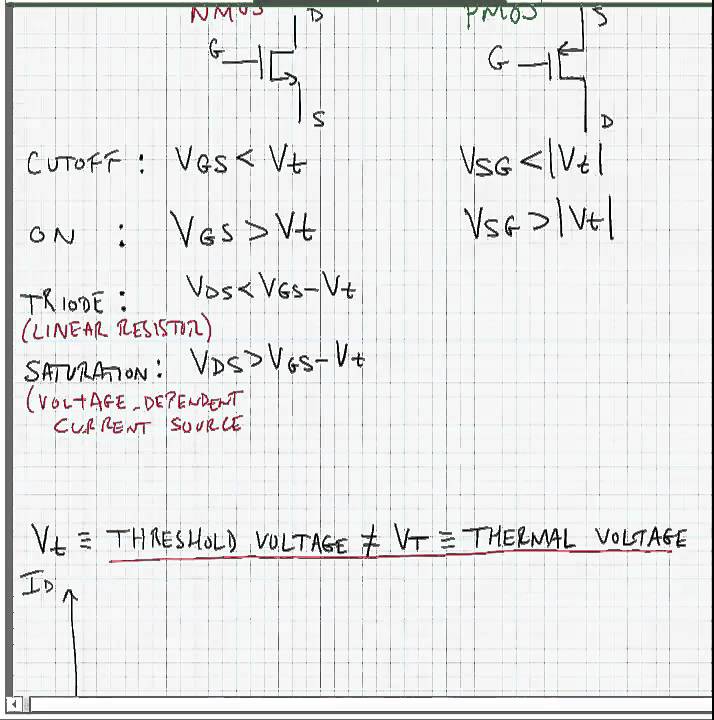 NMOS PMOS
D S
G G
S D
CUTOFF : VGS < Vt VSG < |Vt|
ON : VGS > Vt VSG > |Vt|
TRIODE : VDS < VGS - Vt
(LINEAR RESISTOR)
SATURATION : VDS > VGS - Vt
(VOLTAGE-DEPENDENT
CURRENT SOURCE
Vt ≡ THRESHOLD VOLTAGE ≠ VT ≡ THERMAL VOLTAGE
ID